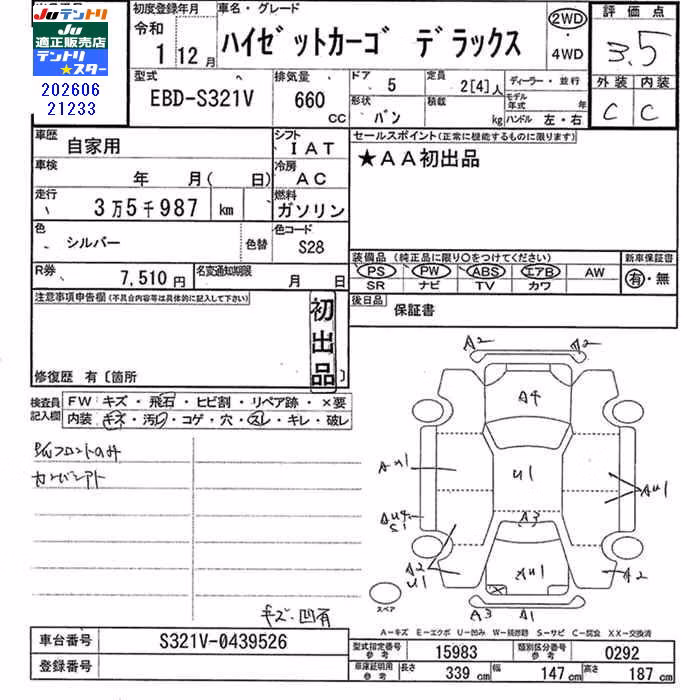 Juテントリ
Ju
適正販売店
テントリ
★スター
202606
21233
初度登録年月
令和
1 12 月
車名・グレード
ハイゼットカーゴ デラックス
2WD
4WD
評価点
3.5
外装 内装
C C
型式
EBD-S321V
排気量
660
cc
ドア
5
形状
バン
定員
2[4]人
積載
kg
ディーラー・並行
モデル年式 年
ハンドル 左・右
車歴
自家用
シフト
IAT
車検
年 月( 日)
冷房
AC
走行
3万5千987 km
燃料
ガソリン
色
シルバー
色替
色コード
S28
R券
7,510円
名変通知期限
月 日
セールスポイント(正常に機能するものに限ります)
★AA初出品
装備品 (純正品に限り○をつけてください)
PS PW ABS エアB AW
SR ナビ TV カワ
新車保証書
有・無
後日品
保証書
注意事項申告欄(不具合内容等は具体的に記入して下さい)
初出品
修復歴 有〔箇所 〕
検査員記入欄
FW キズ・飛石・ヒビ割・リペア跡・×要
内装 キズ・汚レ・コゲ・穴・スレ・キレ・破レ
P/Wフロントのみ
カンバンアト
キズ・凹有
A2
A2
A4
U1
AU1
AU1
AU4
S1
A3
A2
U1
AU1
A2
A3
A1
スペア
A－キズ E－エクボ U－凹み W－板修跡 S－サビ C－腐食 XX－交換済
車台番号
S321V-0439526
登録番号
型式指定番号
参考
15983
類別区分番号
参考
0292
車庫証明用
参考
長さ
339 cm
幅
147 cm
高さ
187 cm